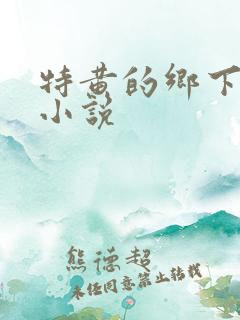 特黄的鄉下
小說
熊德超
未经同意禁止转载